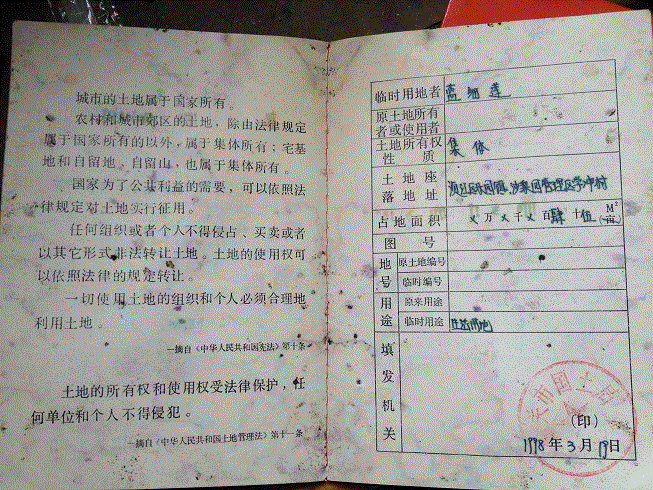 城市的土地属于国家所有。
农村和城市郊区的土地，除由法律规定
属于国家所有的以外，属于集体所有；宅基
地和自留地、自留山，也属于集体所有。
国家为了公共利益的需要，可以依照法
律规定对土地实行征用。
任何组织或者个人不得侵占、买卖或者
以其它形式非法转让土地。土地的使用权可
以依照法律的规定转让。
一切使用土地的组织和个人必须合理地
利用土地。
—摘自《中华人民共和国宪法》第十条
土地的所有权和使用权受法律保护，任
何单位和个人不得侵犯。
—摘自《中华人民共和国土地管理法》第十一条
临时用地者
原土地所有
者或使用者
土地所有权
性质 集体
土地座
落地址
占地面积 ×万×千×百肆十伍 M²（亩）
图号
地号 原土地编号
临时编号
用途 原来用途
临时用途 生活用地
填发机关
（印）
1998年3月19日